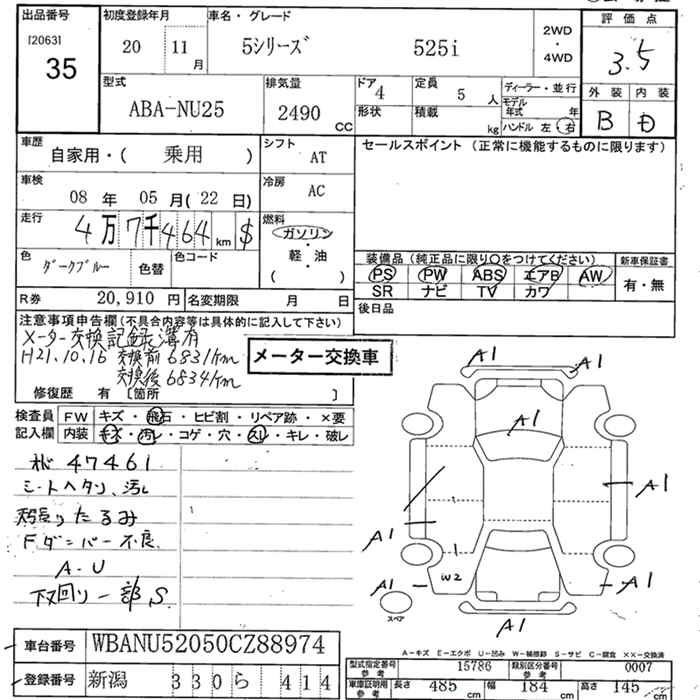 出品番号
[2063]
35
初度登録年月
20 11 月
車名・グレード
5シリーズ 525i
2WD
・
4WD
評価点
3.5
型式
ABA-NU25
排気量
2490 CC
ドア
4
形状
定員
5 人
積載
kg
ディーラー・並行
モデル年式 年
ハンドル 左・右
外装 内装
B D
車歴
自家用・( 乗用 )
シフト
AT
セールスポイント (正常に機能するものに限ります)
車検
08 年 05 月(22 日)
冷房
AC
走行
4万7千464 km $
燃料
ガソリン
・
軽・油
( )
色
ダークブルー
色替
色コード
装備品 (純正品に限り○をつけてください)
新車保証書
PS PW ABS エアB AW
SR ナビ TV カワ
有・無
R券 20,910 円
名変期限 月 日
後日品
注意事項申告欄(不具合内容等は具体的に記入して下さい)
メーター交換記録簿有
H21.10.16 交換前 6831km
交換後 6834km
メーター交換車
修復歴 有 [箇所 ]
検査員
記入欄
FW キズ・飛石・ヒビ割・リペア跡・×要
内装 キズ・汚レ・コゲ・穴・スレ・キレ・破レ
47461
シートヘタリ、汚レ
天張りたるみ
Fダンパー不良
A-U
下回り一部S
A1
A1
A1
A1
A1
A1
W2
A1
A1
スペア
A-キズ E-エクボ U-凹み W-補修跡 S-サビ C-腐食 ××-交換済
車台番号 WBANU52050CZ88974
登録番号 新潟 330 ら 414
型式指定番号
参考
15786
類別区分番号
参考
0007
車庫証明用
参考
長さ 485 cm
幅 184 cm
高さ 145 cm